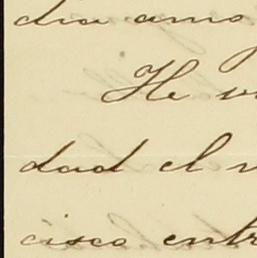 dia amo
He v
dad el
cisco entr